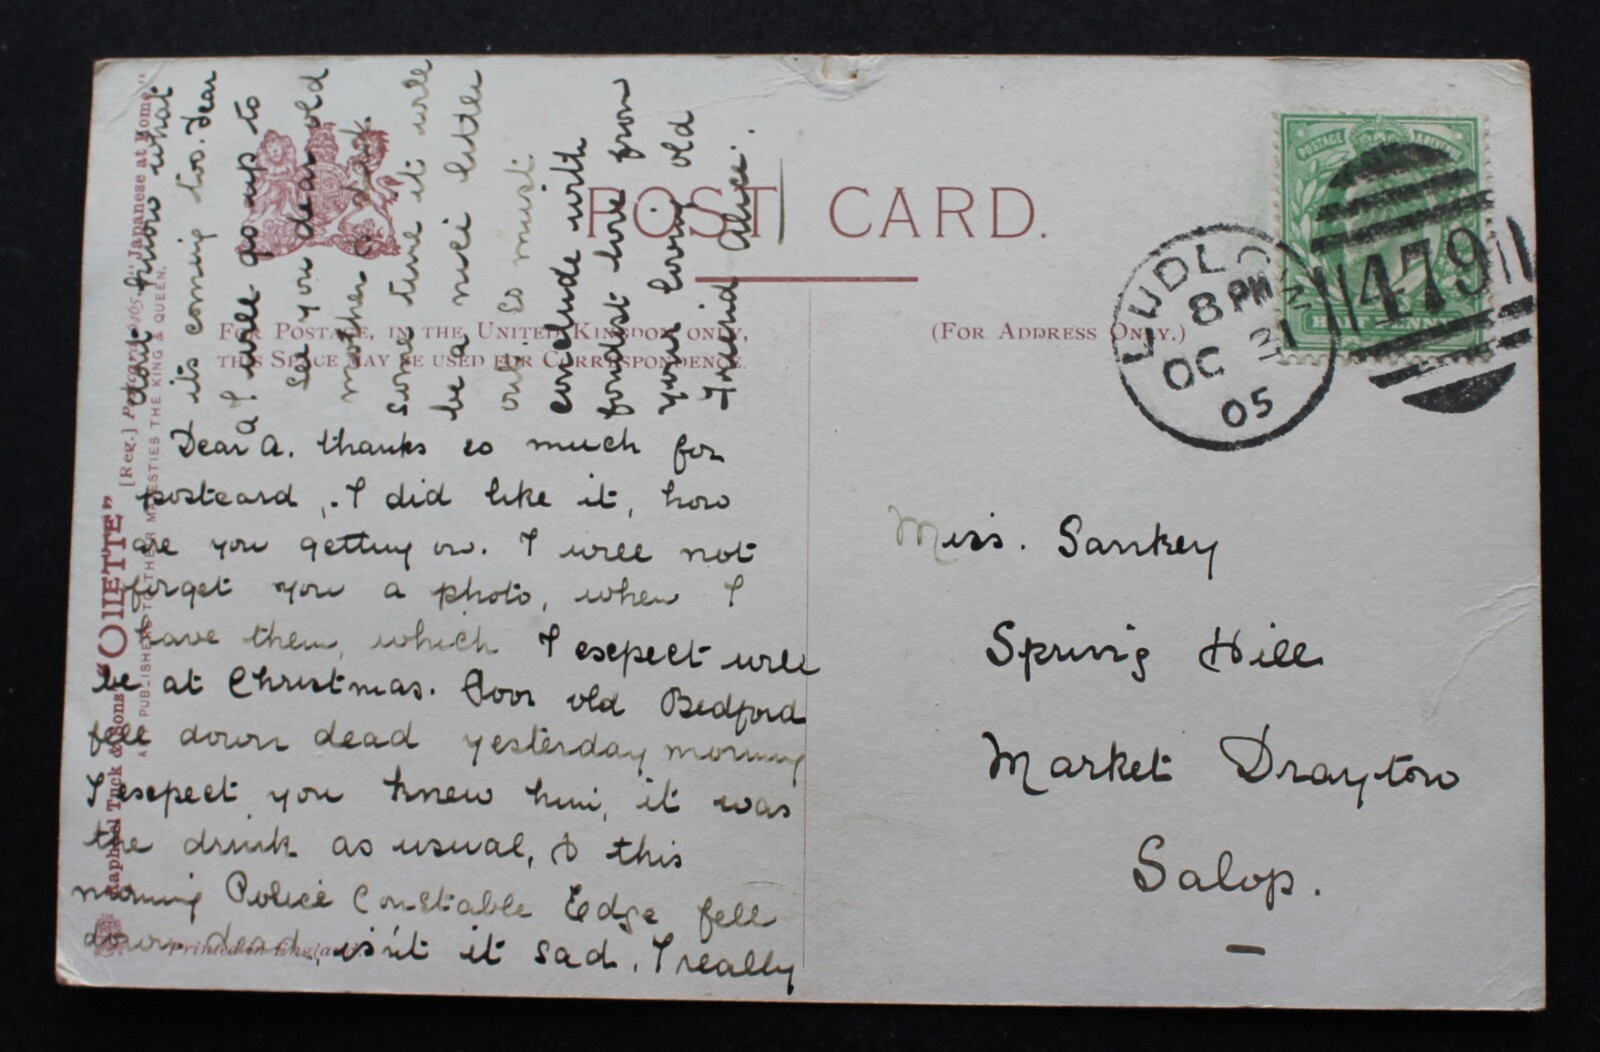 POST CARD.
FOR POSTAGE, IN THE UNITED KINGDOM ONLY,
THIS SPACE MAY BE USED FOR CORRESPONDENCE.
(FOR ADDRESS ONLY.)
Raphael Tuck & Sons' "OILETTE" [Reg.] Postcard "Japanese at Home."
ART PUBLISHERS TO THEIR MAJESTIES THE KING & QUEEN.
Printed in England.
POSTAGE REVENUE
HALF PENNY
LUDLOW
8 PM
OC 31
05
479
Dear A. thanks so much for
postcard, I did like it, how
are you getting on. I will not
forget you a photo, when I
have them, which I expect will
be at Christmas. Poor old Bedford
fell down dead yesterday morning
I expect you knew him, it was
the drink as usual, & this
morning Police Constable Edge fell
down dead, isn't it sad. I really
dont know what
its coming too. Dear
A I will go up to
see you dear old
mother &
some time it will
be a nice little
out. So must
conclude with
fondest love from
your loving old
Friend Alice.
Miss. Sankey
Spring Hill
Market Drayton
Salop.